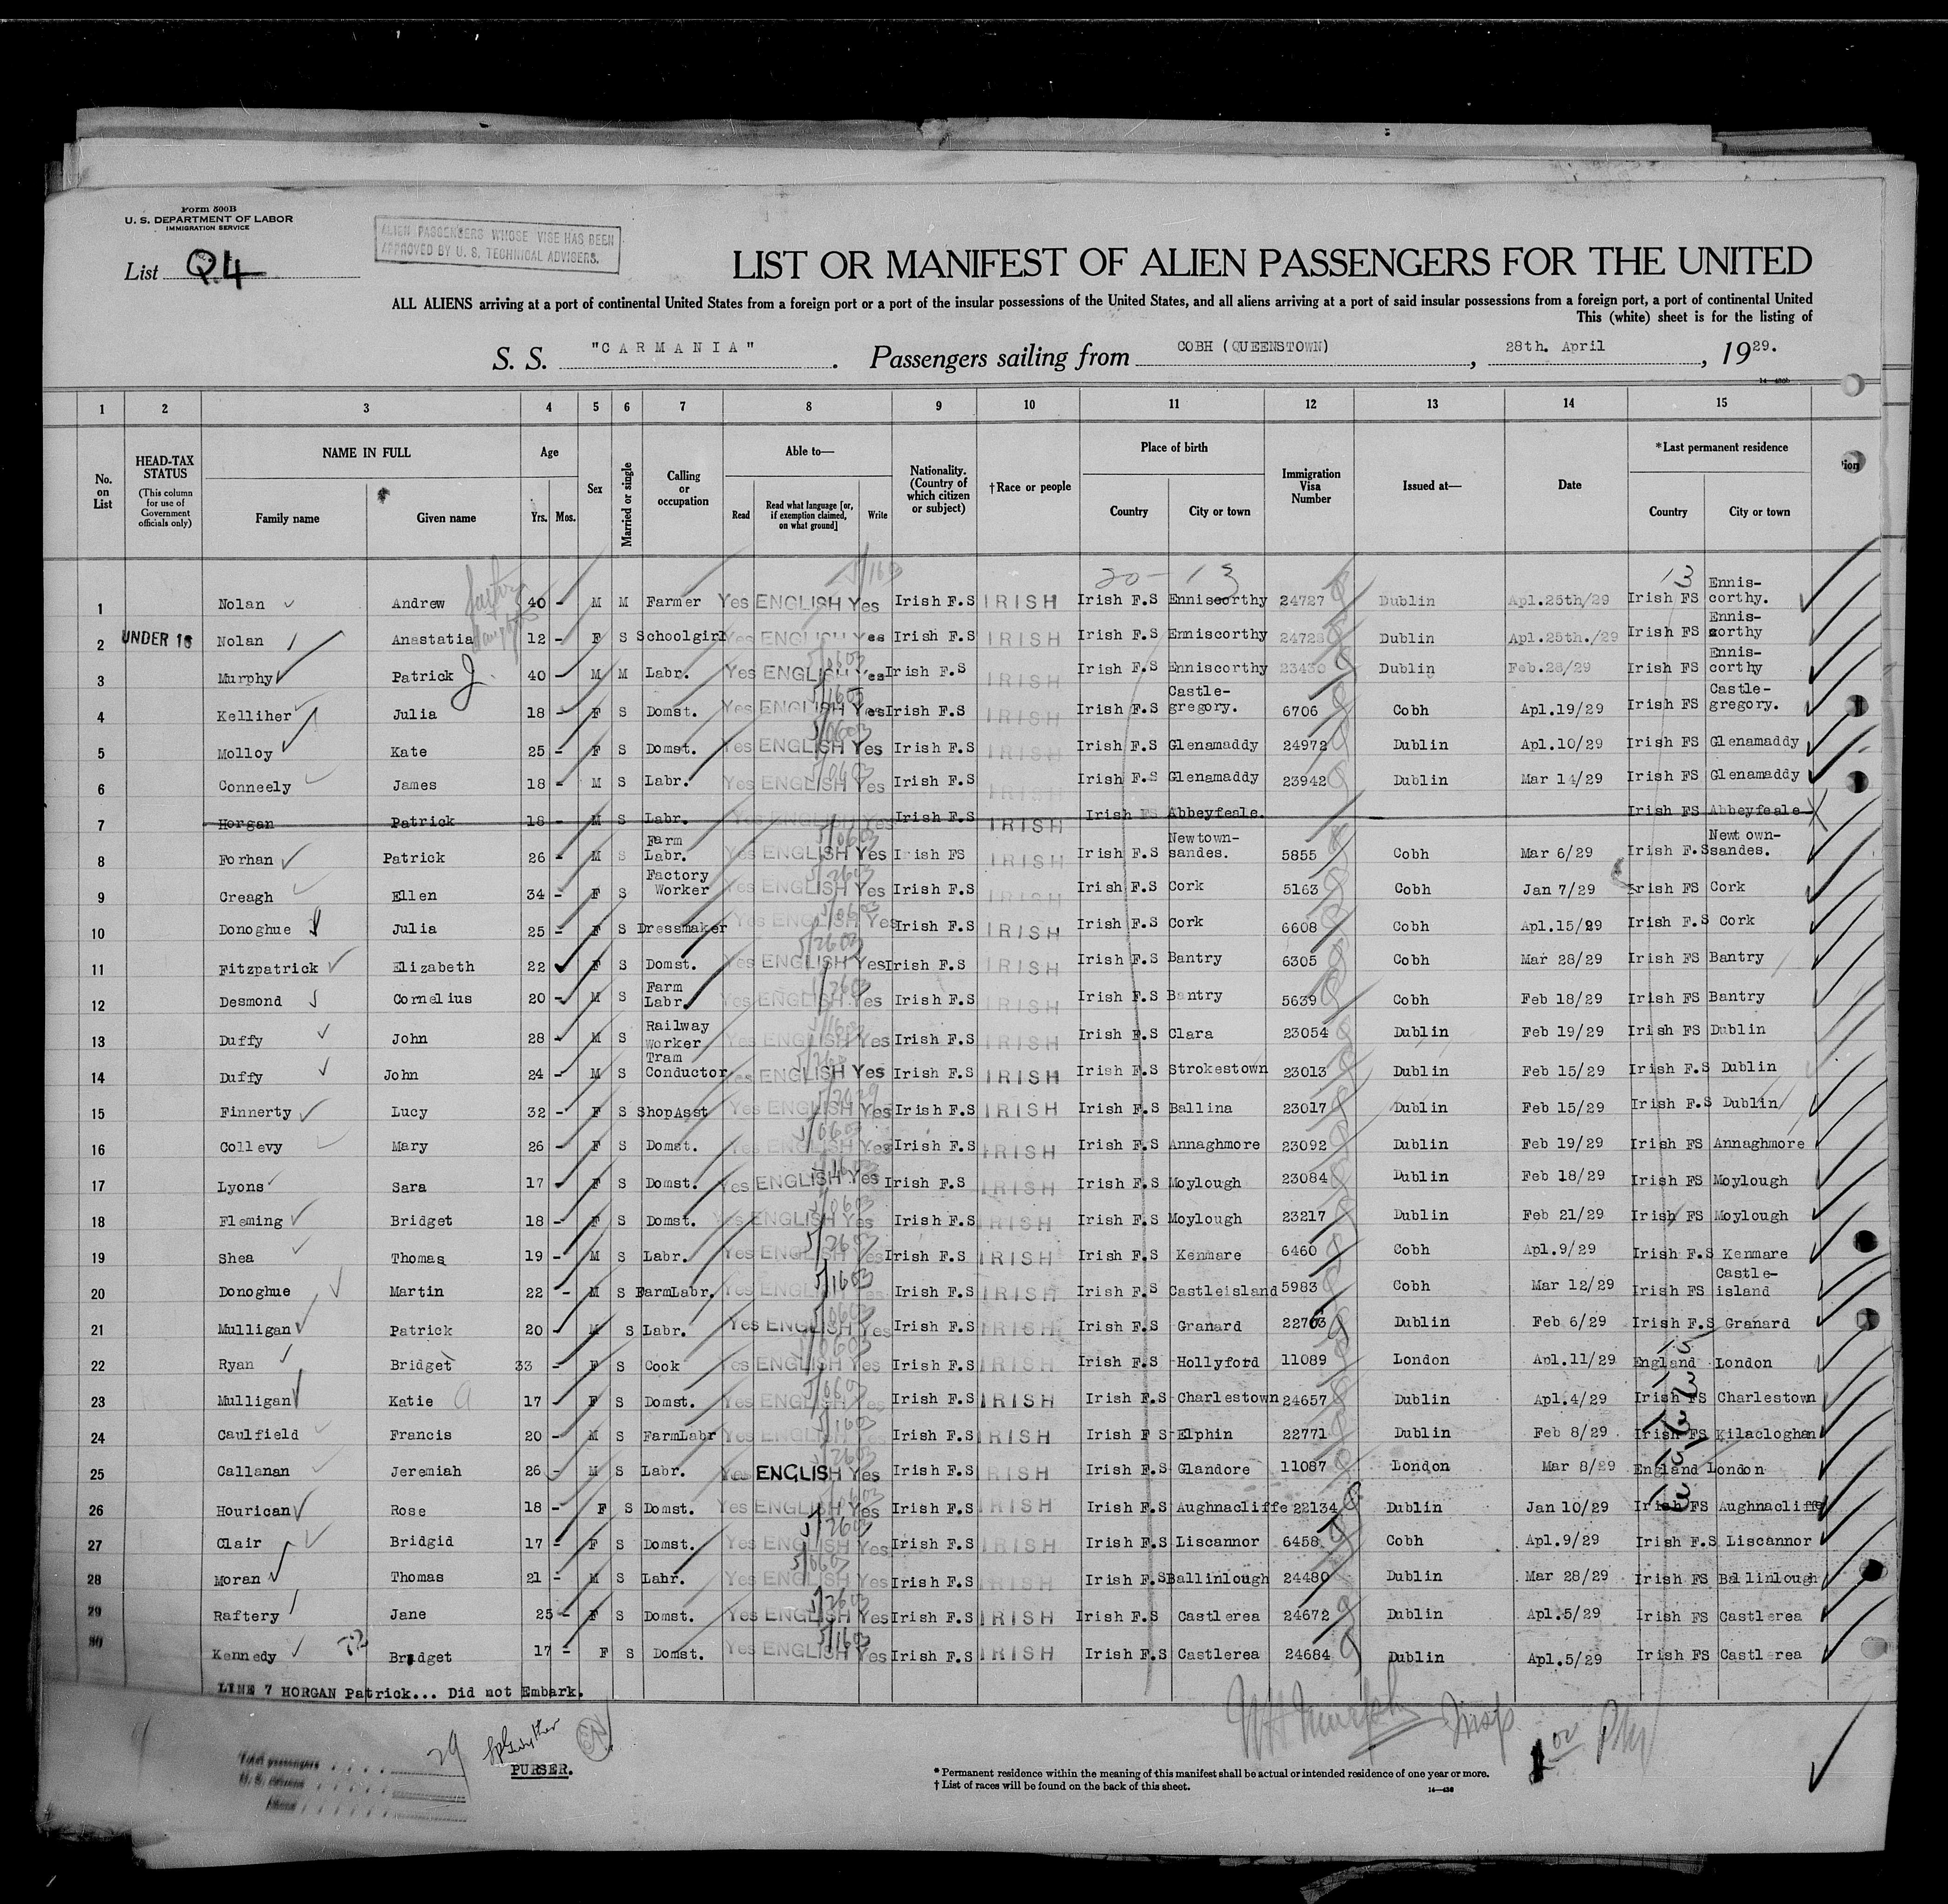 Form 500B
U. S. DEPARTMENT OF LABOR
IMMIGRATION SERVICE
ALIEN PASSENGERS WHOSE VISE HAS BEEN
APPROVED BY U. S. TECHNICAL ADVISERS.
List Q4
LIST OR MANIFEST OF ALIEN PASSENGERS FOR THE UNITED
ALL ALIENS arriving at a port of continental United States from a foreign port or a port of the insular possessions of the United States, and all aliens arriving at a port of said insular possessions from a foreign port, a port of continental United
This (white) sheet is for the listing of
S. S. "CARMANIA". Passengers sailing from COBH (QUEENSTOWN), 28th. April, 1929.
1 2 3 4 5 6 7 8 9 10 11 12 13 14 15
No. on List
HEAD-TAX STATUS (This column for use of Government officials only)
NAME IN FULL
Family name Given name
Age
Yrs. Mos.
Sex
Married or single
Calling or occupation
Able to—
Read Read what language [or, if exemption claimed, on what ground] Write
Nationality. (Country of which citizen or subject)
†Race or people
Place of birth
Country City or town
Immigration Visa Number
Issued at—
Date
*Last permanent residence
Country City or town
20- 13 13
1 Nolan Andrew 40 - M M Farmer Yes ENGLISH Yes Irish F.S IRISH Irish F.S Enniscorthy 24727 Dublin Apl.25th/29 Irish FS Ennis-corthy.
2 UNDER 16 Nolan Anastatia 12 - F S Schoolgirl Yes ENGLISH Yes Irish F.S IRISH Irish F.S Enniscorthy 24728 Dublin Apl.25th./29 Irish FS Ennis-corthy
3 Murphy Patrick J. 40 M M Labr. Yes ENGLISH Yes Irish F.S IRISH Irish F.S Enniscorthy 23430 Dublin Feb.28/29 Irish FS Ennis-corthy
4 Kelliher Julia 18 - F S Domst. Yes ENGLISH Yes Irish F.S IRISH Irish F.S Castle-gregory. 6706 Cobh Apl.19/29 Irish FS Castle-gregory.
5 Molloy Kate 25 - F S Domst. Yes ENGLISH Yes Irish F.S IRISH Irish F.S Glenamaddy 24972 Dublin Apl.10/29 Irish FS Glenamaddy
6 Conneely James 18 - M S Labr. Yes ENGLISH Yes Irish F.S IRISH Irish F.S Glenamaddy 23942 Dublin Mar 14/29 Irish FS Glenamaddy
7 Horgan Patrick 18 - M S Labr. Yes ENGLISH Yes Irish F.S IRISH Irish FS Abbeyfeale. Irish FS Abbeyfeale
8 Forhan Patrick 26 - M S Farm Labr. Yes ENGLISH Yes Irish FS IRISH Irish F.S Newtown-sandes. 5855 Cobh Mar 6/29 Irish F.S Newtown-sandes.
9 Creagh Ellen 34 - F S Factory Worker Yes ENGLISH Yes Irish F.S IRISH Irish F.S Cork 5163 Cobh Jan 7/29 Irish FS Cork
10 Donoghue Julia 25 - F S Dressmaker Yes ENGLISH Yes Irish F.S IRISH Irish F.S Cork 6608 Cobh Apl.15/29 Irish F.S Cork
11 Fitzpatrick Elizabeth 22 F S Domst. Yes ENGLISH Yes Irish F.S IRISH Irish F.S Bantry 6305 Cobh Mar 28/29 Irish FS Bantry
12 Desmond Cornelius 20 - M S Farm Labr. Yes ENGLISH Yes Irish F.S IRISH Irish F.S Bantry 5639 Cobh Feb 18/29 Irish FS Bantry
13 Duffy John 28 - M S Railway Worker Yes ENGLISH Yes Irish F.S IRISH Irish F.S Clara 23054 Dublin Feb 19/29 Irish FS Dublin
14 Duffy John 24 - M S Tram Conductor Yes ENGLISH Yes Irish F.S IRISH Irish F.S Strokestown 23013 Dublin Feb 15/29 Irish F.S Dublin
15 Finnerty Lucy 32 - F S ShopAsst Yes ENGLISH Yes Irish F.S IRISH Irish F.S Ballina 23017 Dublin Feb 15/29 Irish F.S Dublin
16 Collevy Mary 26 - F S Domst. Yes ENGLISH Yes Irish F.S IRISH Irish F.S Annaghmore 23092 Dublin Feb 19/29 Irish FS Annaghmore
17 Lyons Sara 17 F S Domst. Yes ENGLISH Yes Irish F.S IRISH Irish F.S Moylough 23084 Dublin Feb 18/29 Irish FS Moylough
18 Fleming Bridget 18 - F S Domst. Yes ENGLISH Yes Irish F.S IRISH Irish F.S Moylough 23217 Dublin Feb 21/29 Irish FS Moylough
19 Shea Thomas 19 - M S Labr. Yes ENGLISH Yes Irish F.S IRISH Irish F.S Kenmare 6460 Cobh Apl.9/29 Irish F.S Kenmare
20 Donoghue Martin 22 - M S FarmLabr. Yes ENGLISH Yes Irish F.S IRISH Irish F.S Castleisland 5983 Cobh Mar 12/29 Irish FS Castle-island
21 Mulligan Patrick 20 M S Labr. Yes ENGLISH Yes Irish F.S IRISH Irish F.S Granard 22763 Dublin Feb 6/29 Irish F.S Granard
22 Ryan Bridget 33 - F S Cook Yes ENGLISH Yes Irish F.S IRISH Irish F.S Hollyford 11089 London Apl.11/29 England London
23 Mulligan Katie 17 F S Domst. Yes ENGLISH Yes Irish F.S IRISH Irish F.S Charlestown 24657 Dublin Apl.4/29 Irish FS Charlestown
24 Caulfield Francis 20 - M S FarmLabr Yes ENGLISH Yes Irish F.S IRISH Irish F S Elphin 22771 Dublin Feb 8/29 Irish FS Kilacloghan
25 Callanan Jeremiah 26 - M S Labr. Yes ENGLISH Yes Irish F.S IRISH Irish F.S Glandore 11087 London Mar 8/29 England London
26 Hourican Rose 18 - F S Domst. Yes ENGLISH Yes Irish F.S IRISH Irish F.S Aughnacliffe 22134 Dublin Jan 10/29 Irish FS Aughnacliffe
27 Clair Bridgid 17 - F S Domst. Yes ENGLISH Yes Irish F.S IRISH Irish F.S Liscannor 6458 Cobh Apl.9/29 Irish F.S Liscannor
28 Moran Thomas 21 - M S Labr. Yes ENGLISH Yes Irish F.S IRISH Irish F.S Ballinlough 24480 Dublin Mar 28/29 Irish FS Ballinlough
29 Raftery Jane 25 - F S Domst. Yes ENGLISH Yes Irish F.S IRISH Irish F.S Castlerea 24672 Dublin Apl.5/29 Irish FS Castlerea
30 Kennedy Bridget 17 - F S Domst. Yes ENGLISH Yes Irish F.S IRISH Irish F.S Castlerea 24684 Dublin Apl.5/29 Irish FS Castlerea
LINE 7 HORGAN Patrick... Did not Embark.
Total passengers 29
U. S. citizens
Aliens
PURSER.
* Permanent residence within the meaning of this manifest shall be actual or intended residence of one year or more.
† List of races will be found on the back of this sheet.